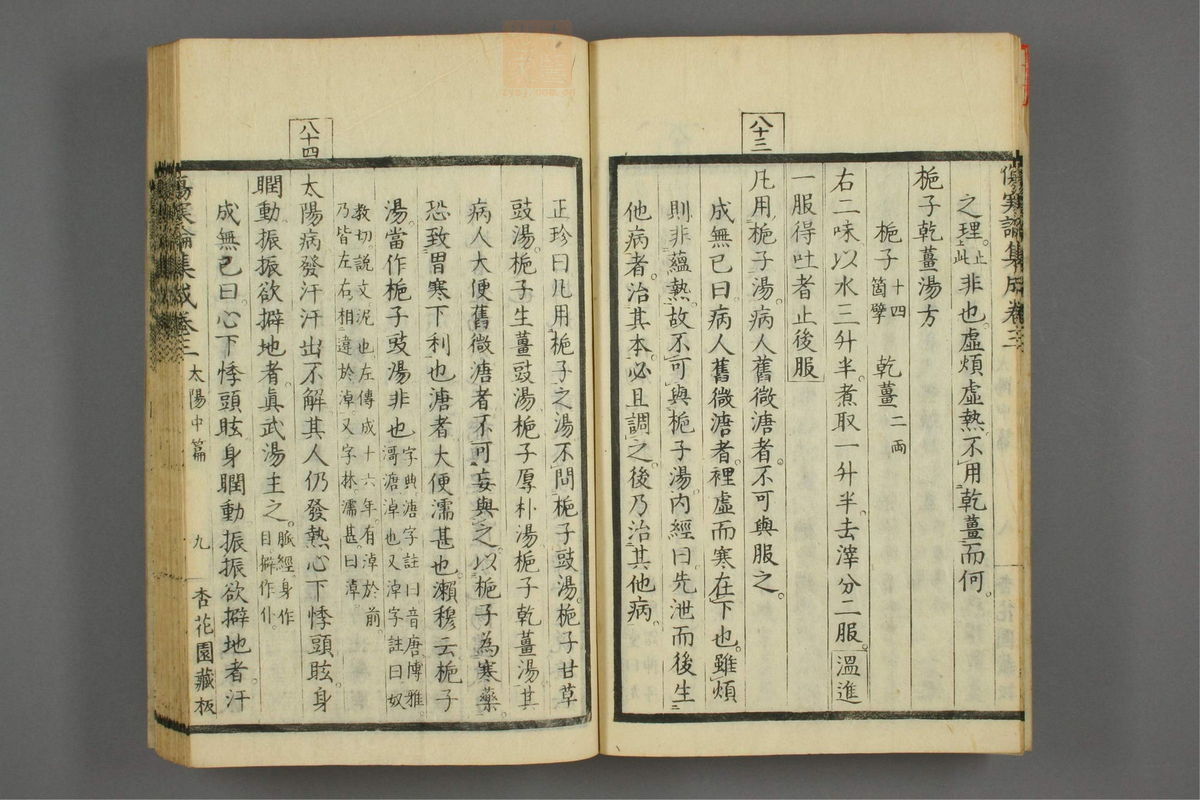 傷寒論集成卷三
八十三
之理。止此非也。虛煩虛熱。不用乾薑而何。
梔子乾薑湯方
梔子十四箇擘 乾薑二兩
右二味以水三升半。煮取一升半。去滓分二服。溫進
一服得吐者止後服
凡用梔子湯。病人舊微溏者。不可與服之。
成無已曰病人舊微溏者。裡虛而寒在下也。雖煩
則非蘊熱。故不可與梔子湯。內經曰。先泄而後生
他病者。治其本。必且調之。後乃治其他病。
八十四
正珍曰凡用梔子之湯。不問梔子豉湯。梔子甘草
豉湯。梔子生薑豉湯。梔子厚朴湯。梔子乾薑湯。其
病人大便舊微溏者。不可妄與之。以梔子為寒藥。
恐致胃寒下利也。溏者大便濡甚也。瀨穆云梔子
湯。當作梔子豉湯。非也。字典溏字註曰音唐。博雅。
滒溏淖也又淖字註曰奴
教切。說文泥也。左傳成十六年。有淖於前。
乃皆左右相違於淖。又字林濡甚。曰淖。
太陽病發汗。汗出不解。其人仍發熱。心下悸。頭眩。身
瞤動。振振欲擗地者。眞武湯主之。脈經身作
目擗作仆。
成無已曰。心下悸。頭眩。身瞤動。振振欲擗地者。汗
傷寒論集成卷三 太陽中篇 九 杏花園藏板